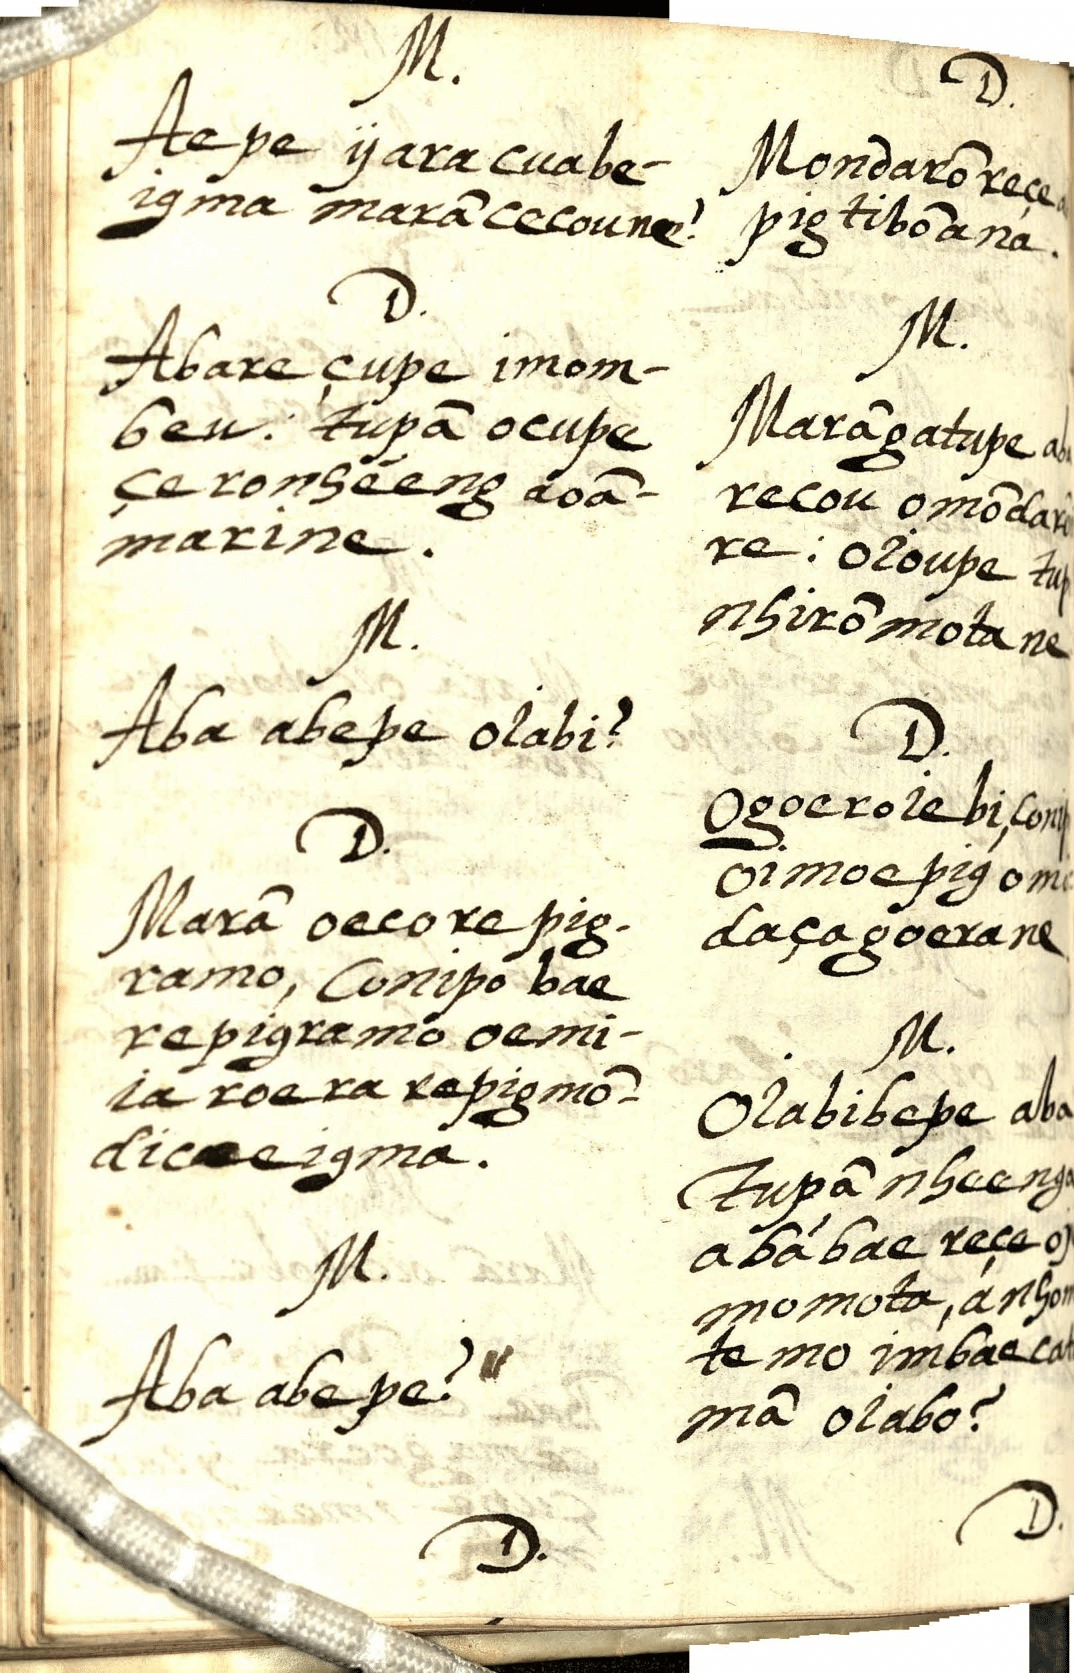 M.
Ae pe ÿara cuabe-
igma marã cecoune?
D.
Abare çupe imom-
beu: tupã ocupe
çeronheeng aoã-
marine.
M.
Aba abepe oiabi?
D.
Marã oecorepig-
ramo, Conipo bae
repigramo oemi-
ia roera repigmõ-
dicaeigma.
M.
Aba abepe?
D.
D.
Mondarõ reçe
pigtibõana.
M.
Marãgatupe
recou omõdarõ
re: oioupe
nhirõ mota ne
D.
Ogoeroie bi,
oimoepig
daçagoerane
M.
Oiabibepe aba
tupã nheenga
abábae reçe
momota,
te mo imbae
mã oiabo?
D.